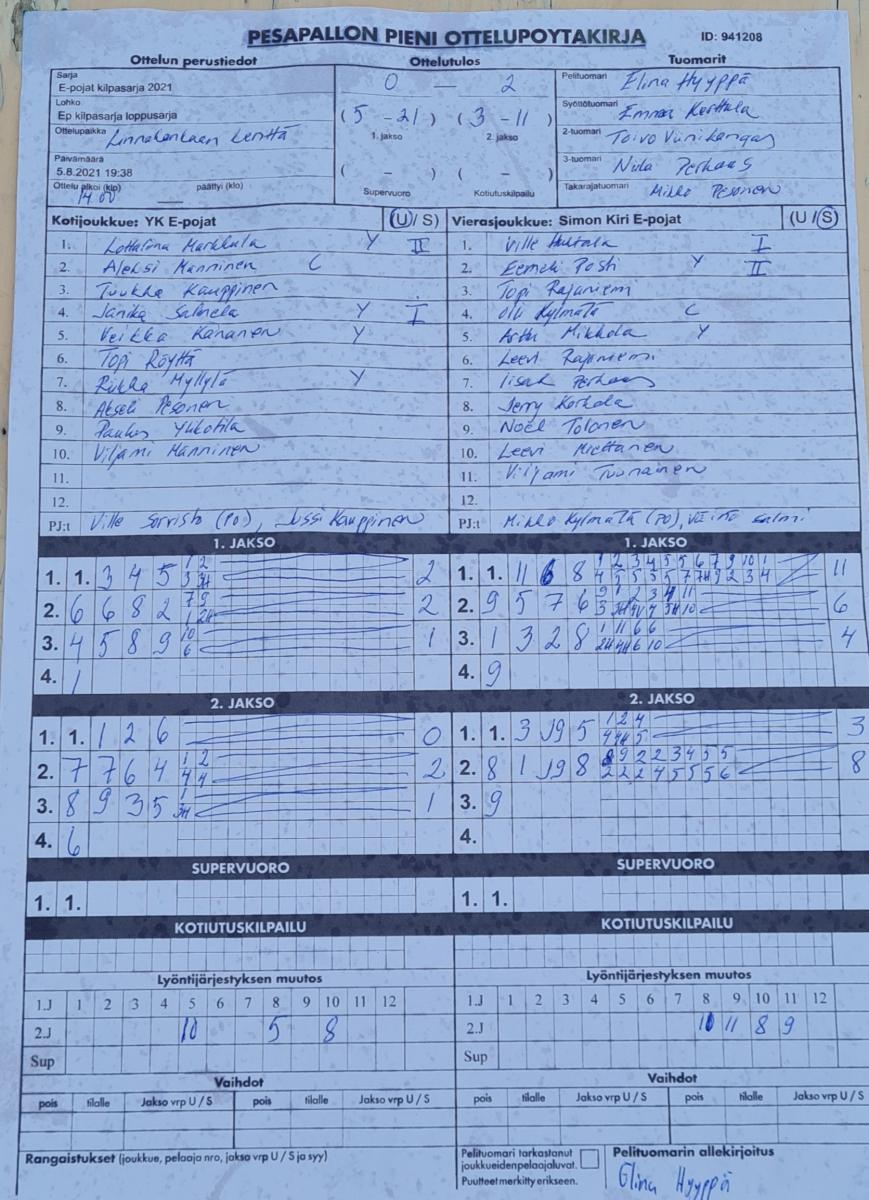 PESÄPALLON PIENI OTTELUPÖYTÄKIRJA ID: 941208
Ottelun perustiedot Ottelutulos Tuomarit
Sarja
E-pojat kilpasarja 2021
0 — 2
Pelituomari Elina Hyyppä
Lohko
Ep kilpasarja loppusarja
(5 - 21) (3 - 11)
1. jakso 2. jakso
Syöttötuomari Emma Kerttula
Ottelupaikka Linnakankaan kenttä
2-tuomari Toivo Viinikangas
Päivämäärä
5.8.2021 19:38
( - ) ( - )
Supervuoro Kotiutuskilpailu
3-tuomari Niila Perhaas
Ottelu alkoi (klo) 19.00 päättyi (klo)
Takarajatuomari Mikko Pesonen
Kotijoukkue: YK E-pojat (U / S) Vierasjoukkue: Simon Kiri E-pojat (U / S)
1. Lottaliina Markkula Y II 1. Ville Huttala I
2. Aleksi Manninen C 2. Eemeli Posti Y II
3. Tuukka Kauppinen 3. Topi Rajaniemi
4. Janika Salmela Y I 4. Oli Kylmätä C
5. Veikka Kananen Y 5. Arttu Mikkola Y
6. Topi Röyttä 6. Leevi Rajaniemi
7. Riikka Myllylä Y 7. Iisak Perhaas
8. Akseli Pesonen 8. Jerry Korkala
9. 9. Noël Tolonen
10. Viljami Manninen 10. Leevi Miettunen
11. 11. Viljami Tuunainen
12. 12.
PJ:t Ville Sorvisto (PO), Jussi Kauppinen PJ:t Mikko Kylmätä (PO), Väinö Salmi
1. JAKSO 1. JAKSO
1. 1. 3 4 5 1 2 2 1. 1. 11 6 8 1 2 3 4 5 5 6 7 9 10 1 11
3 3H 4 5 5 5 5 7 7H 9 2 3 4
2. 6 6 8 2 7 9 2 2. 9 5 7 6 9 1 2 3 4 11 6
1 2H 3 3H 4V 4 5H 10
3. 4 5 8 9 10 1 3. 1 3 2 8 1 11 6 6 4
6 2H 4H 6 10
4. 1 4. 9
2. JAKSO 2. JAKSO
1. 1. 1 2 6 0 1. 1. 3 J9 5 1 2 4 3
4 4H 5
2. 7 7 6 4 1 2 2 2. 8 1 J9 8 8 9 2 2 3 4 5 5 8
4 4 2 2 2 4 5 5 5 6
3. 8 9 3 5 1 1 3. 9
3H
4. 6 4.
SUPERVUORO SUPERVUORO
1. 1. 1. 1.
KOTIUTUSKILPAILU KOTIUTUSKILPAILU
Lyöntijärjestyksen muutos Lyöntijärjestyksen muutos
1.J 1 2 3 4 5 6 7 8 9 10 11 12 1.J 1 2 3 4 5 6 7 8 9 10 11 12
2.J 10 5 8 2.J 10 11 8 9
Sup Sup
Vaihdot Vaihdot
pois tilalle Jakso vrp U / S pois tilalle Jakso vrp U / S pois tilalle Jakso vrp U / S pois tilalle Jakso vrp U / S
Rangaistukset (joukkue, pelaaja nro, jakso vrp U / S ja syy)
Pelituomari tarkastanut
joukkueiden pelaajaluvat.
Puutteet merkitty erikseen.
Pelituomarin allekirjoitus
Elina Hyyppä